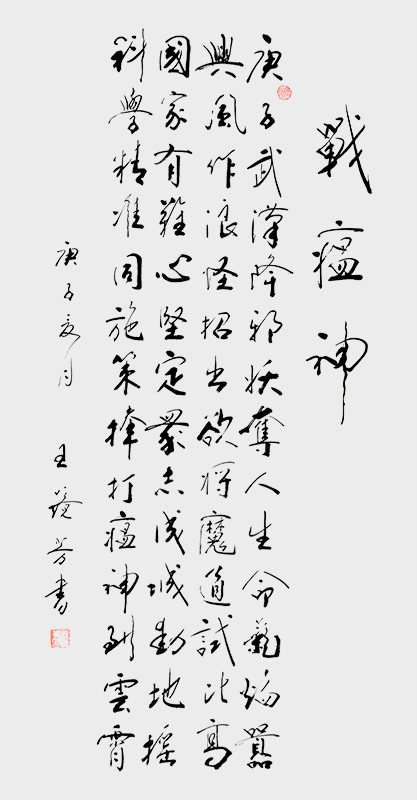 戰瘟神
庚子武漢降邪妖奪人生命氣焰囂
興風作浪怪招出欲將魔道試比高
國家有難心堅定眾志成城動地搖
科學精准同施策棒打瘟神到雲霄
庚子夏月 王芳書